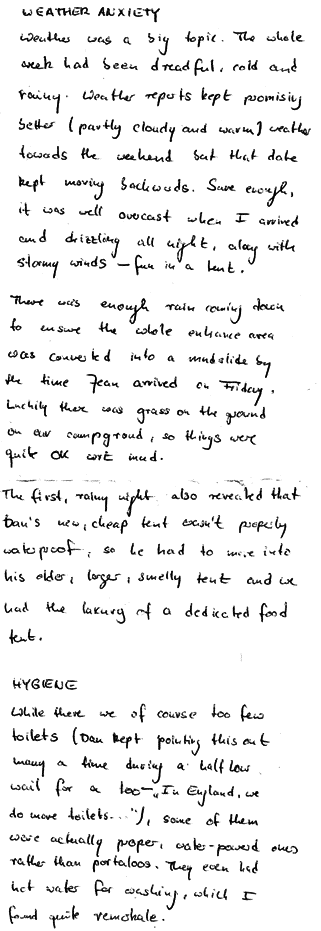 WEATHER ANXIETY
Weather was a big topic. The whole
week had been dreadful, cold and
rainy. Weather reports kept promising
better (partly cloudy and warm) weather
towards the weekend but that date
kept moving backwards. Sure enough,
it was well overcast when I arrived
and drizzling all night, along with
stormy winds – fun in a tent.
There was enough rain coming down
to ensure the whole entrance area
was converted into a mudslide by
the time Jean arrived on Friday.
Luckily there was grass on the ground
on our campground, so things were
quite OK wrt mud.
The first, rainy night also revealed that
Dan's new, cheap tent wasn't properly
waterproof, so he had to move into
his older, larger, smelly tent and we
had the luxury of a dedicated food
tent.
HYGIENE
While there we of course too few
toilets (Dan kept pointing this out
many a time during a half hour
wait for a loo – „In England, we
do more toilets..."), some of them
were actually proper, water-powered ones
rather than portaloos. They even had
hot water for washing, which I
found quite remarkable.